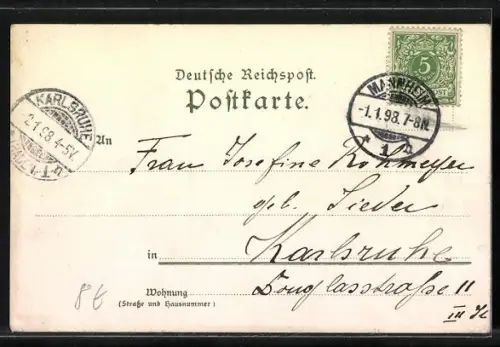 Deutsche Reichspost.
Postkarte.
5
MANNHEIM
-1.1.98.7-8N.
* 1 h
KARLSRUHE
2.1.98.4-5V.
An
Frau Josefine Rohmeyer
geb. Sieder
in Karlsruhe
Wohnung Douglasstraße 11
(Straße und Hausnummer)
III
8€